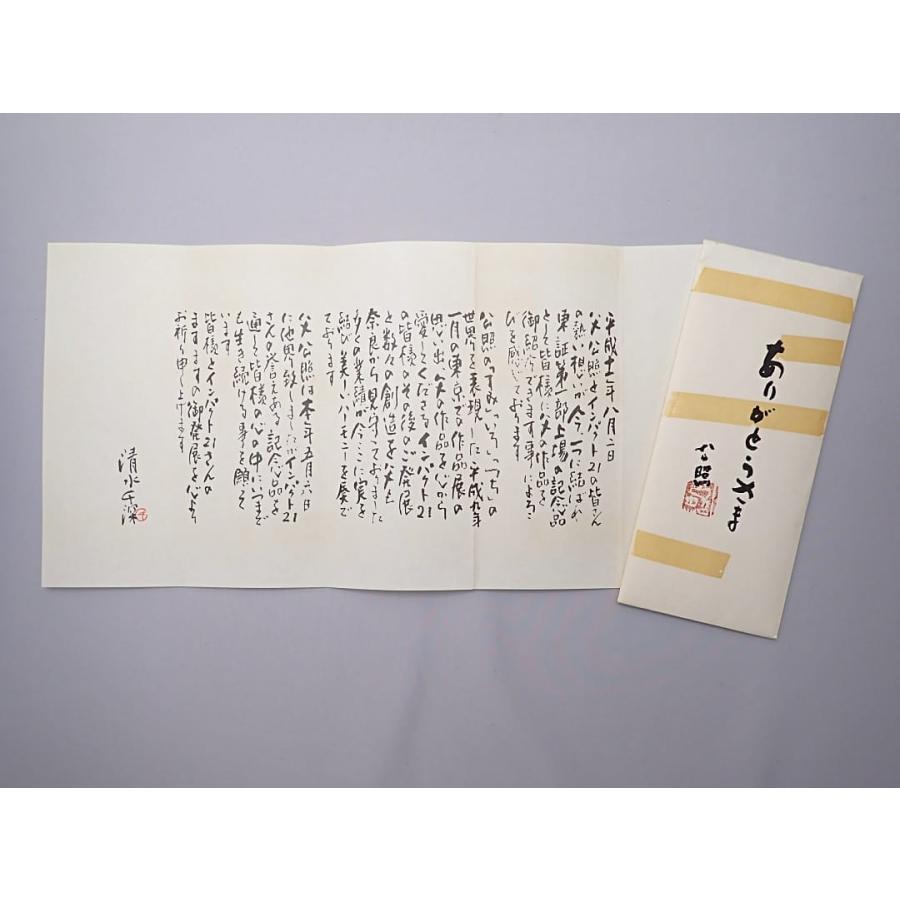 平成十一年八月二日
父公照とインパクト21の皆さん
の熱い想いが今、一つに結ばれ
東証第一部上場の記念品
として皆様に父の作品を
御紹介できます事によろこ
びを感じております
公照の「すみ・いろ・つち」の
世界を表現した平成九年
一月の東京での作品展の
思い出、父の作品を心から
愛してくださるインパクト21
の皆様のその後のご発展
と数々の創造を父も
奈良から見守っておりました
多くの業績が今ここに実を
結び美しいハーモニーを奏で
ております
父公照は本年五月六日
に他界致しましたがインパクト21
さんの誉えある記念品を
通して皆様の心の中にいつまで
も生き続ける事を願って
います
皆様とインパクト21さんの
ますますの御発展を心より
お祈り申し上げます
清水千深
ありがとうさま
公照